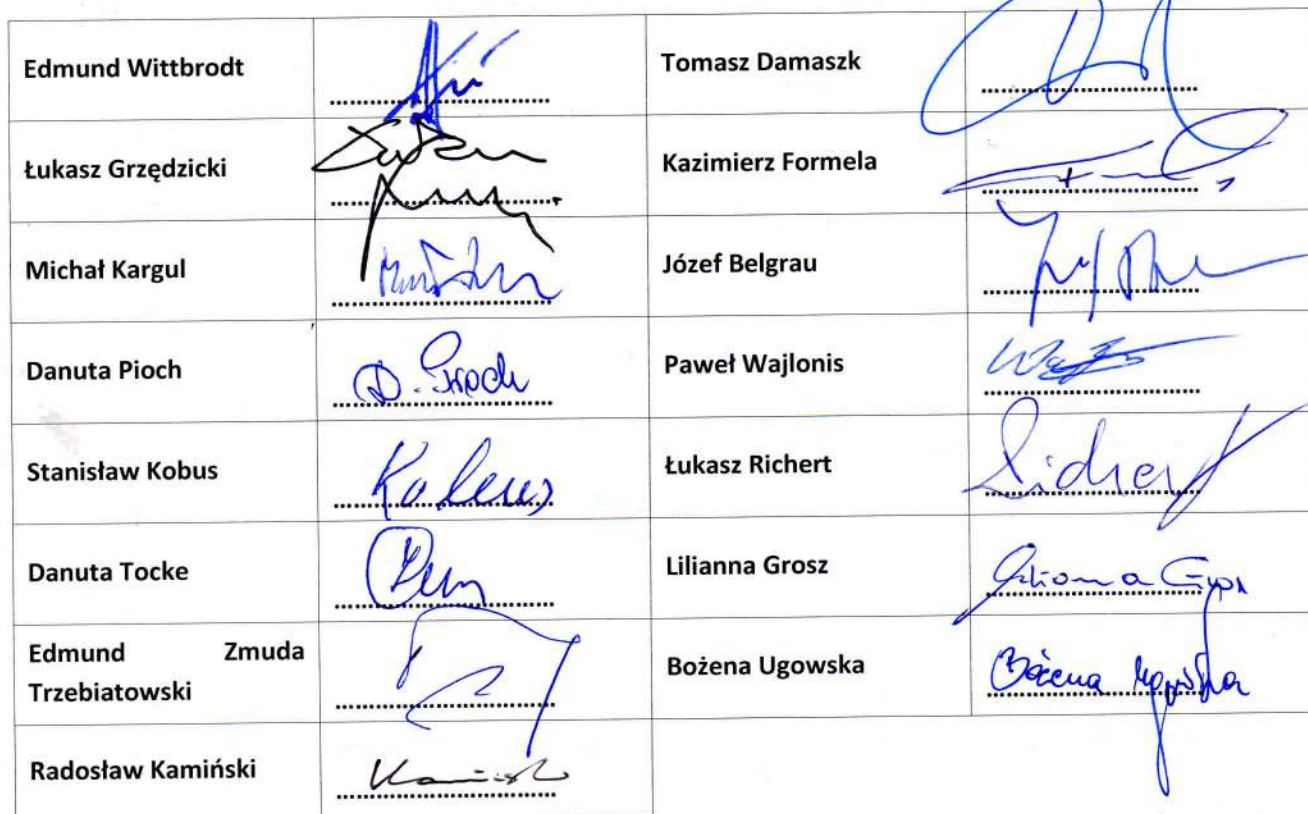 Edmund Wittbrodt
Tomasz Damaszk
Łukasz Grzędzicki
Kazimierz Formela
Michał Kargul
Józef Belgrau
Danuta Pioch
D. Pioch
Paweł Wajlonis
Stanisław Kobus
Kobus
Łukasz Richert
Richert
Danuta Tocke
Lilianna Grosz
Edmund Zmuda
Trzebiatowski
Bożena Ugowska
Bożena Ugowska
Radosław Kamiński